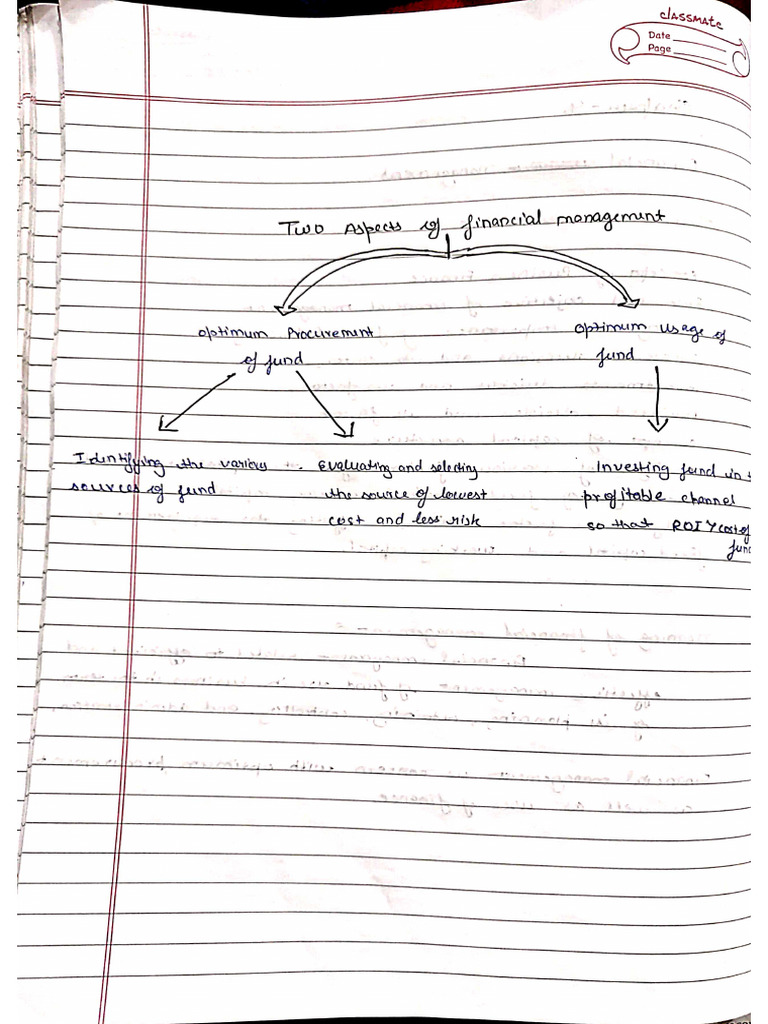 classmate
Date
Page
Two Aspects of financial management
optimum Procurement
of fund
optimum usage of
fund
Identifying the various
sources of fund
Evaluating and selecting
the source of lowest
cost and less risk
Investing fund in
profitable channel
so that ROI > cost of
fund